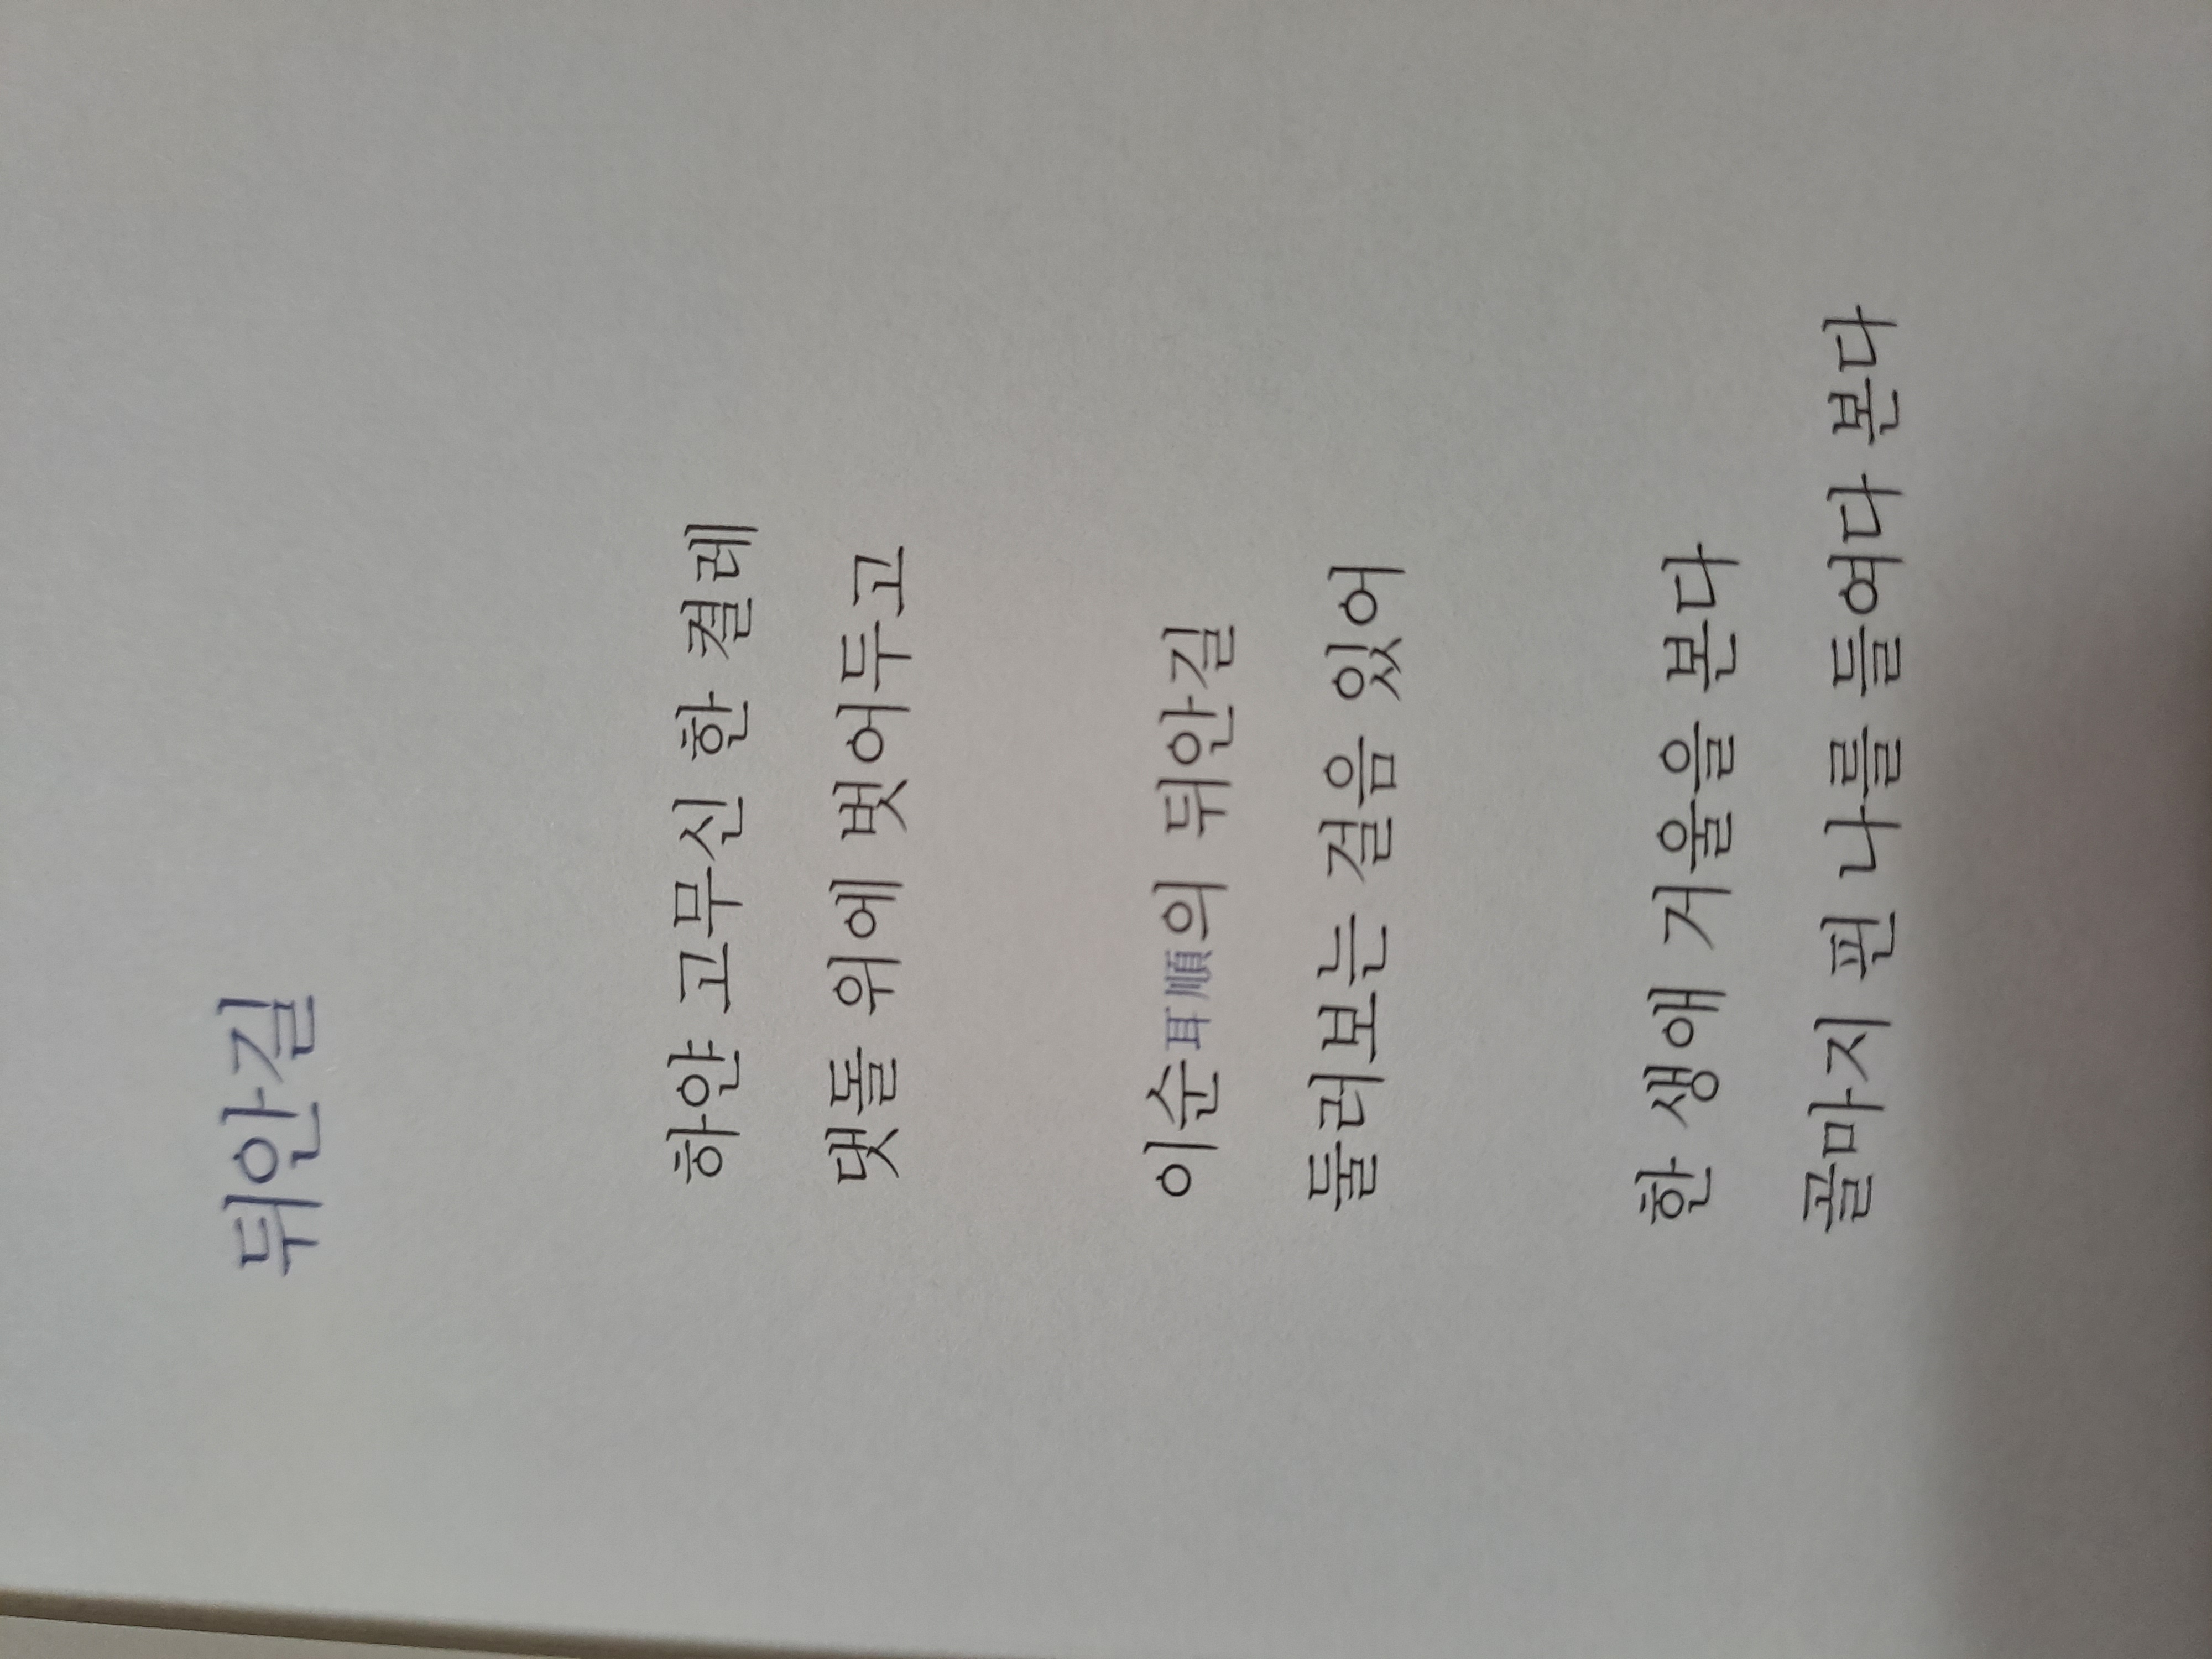 뒤안길
하얀 고무신 한 켤레
댓돌 위에 벗어두고
이순耳順의 뒤안길
둘러보는 걸음 있어
한 생애 거울을 본다
골마지 핀 나를 들여다 본다